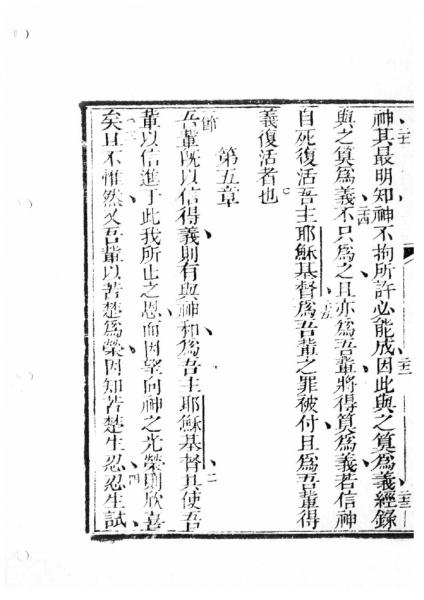 神其最明知神不拘所許必能成因此與之算為義經錄
與之算為義不只為之且亦為吾輩將得算為義若信神
自死復活吾主耶穌基督為吾輩之罪被付且為吾輩得
義復活者也
第五章
節吾輩既以信得義則有與神和為吾主耶穌基督其使吾
輩以信進于此我所止之恩而因望向神之光榮則欣喜
矣且不惟然又吾輩以苦楚為榮因知苦楚生忍忍生試